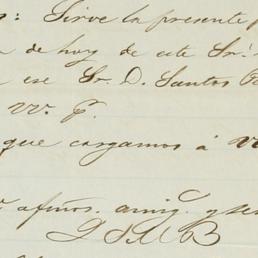 : Sirve la presente p
de hoy de este Sr.
ese Sr. D. Santos
VV. P.
que cargamos á V
afmos. amig. y ser